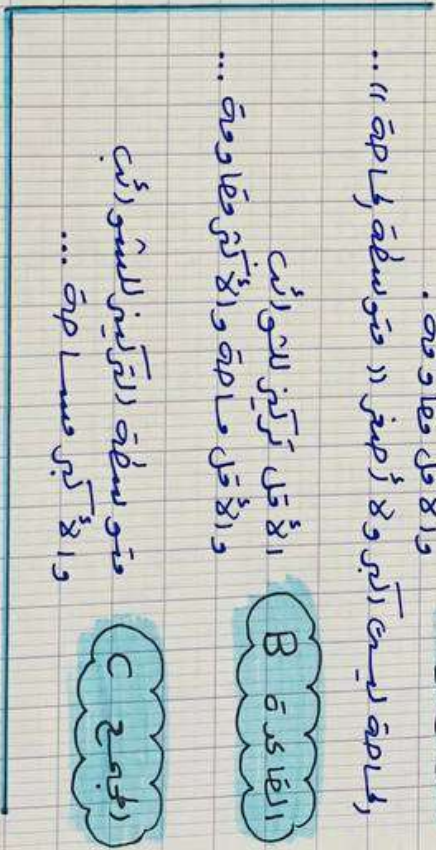 والأقل مقاومة.
المساحة ليست أكبر ولا أصغر " متوسطة المساحة " ...
القاعدة B
الأقل تركيز للشوائب
والأقل مساحة والأكثر مقاومة ...
المجمع C
متوسطة التركيز للشوائب
والأكبر مساحة ...